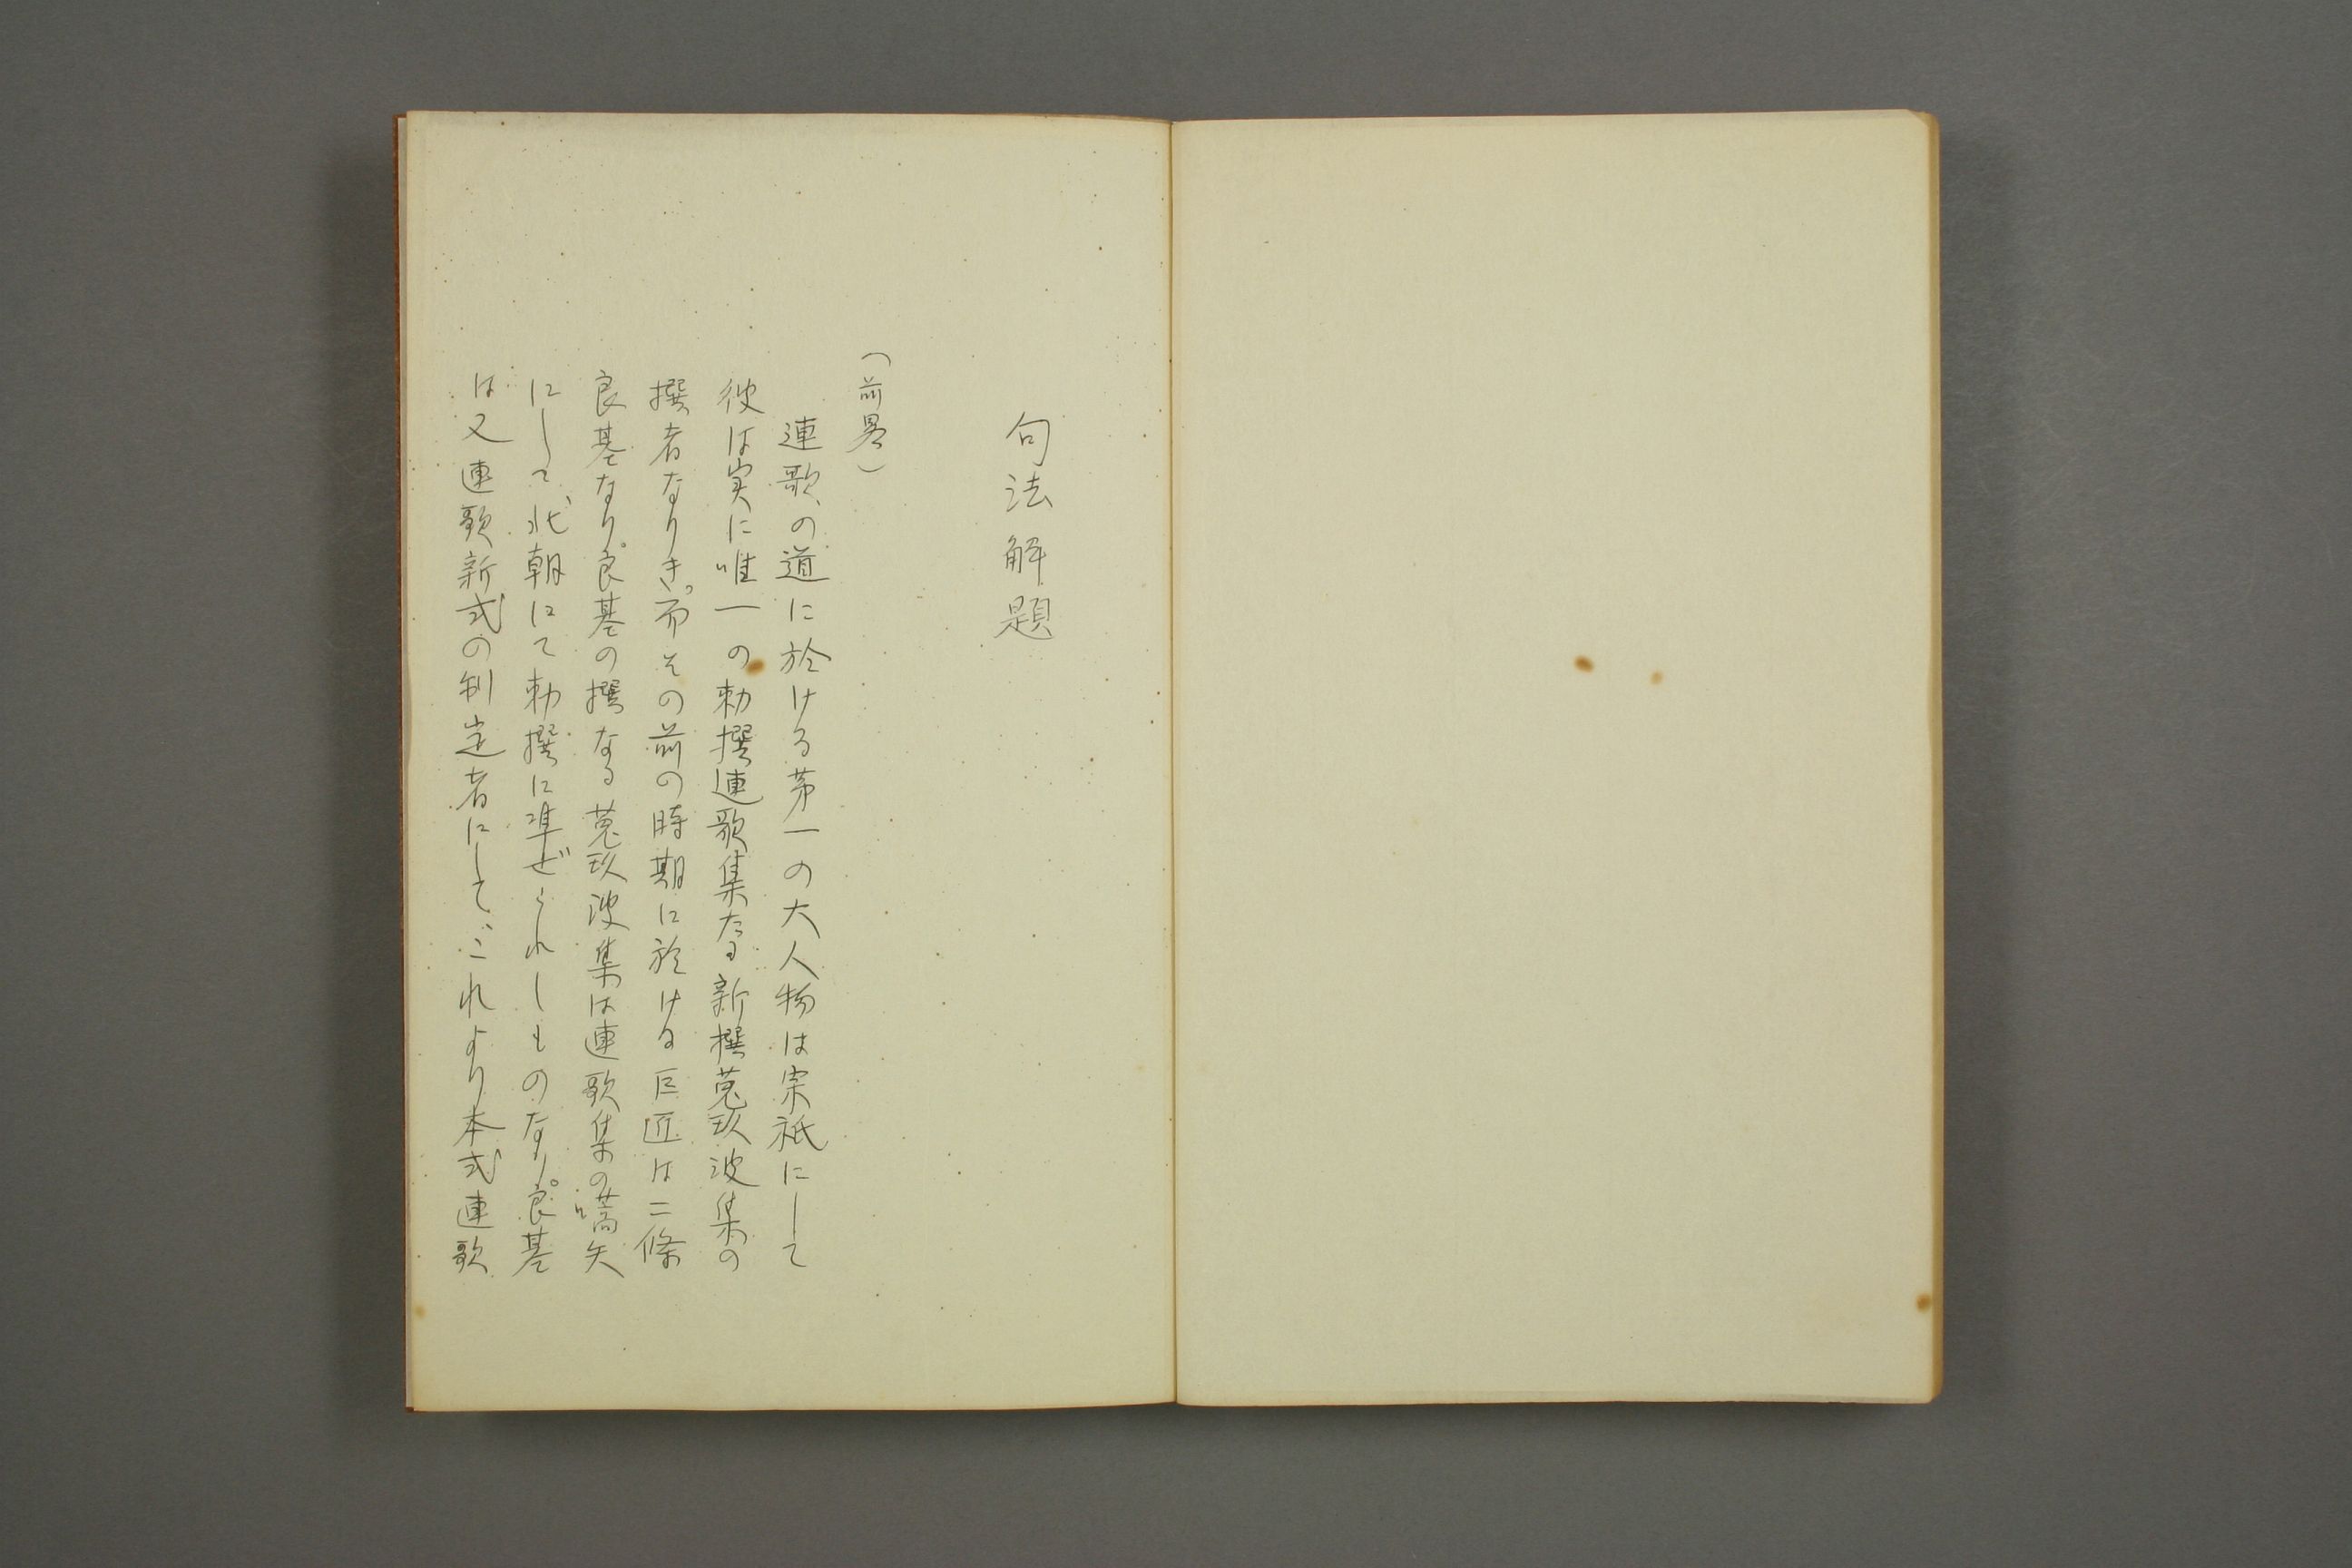 句法解題
(前畧)
連歌の道に於ける第一の大人物は宗祇にして
彼は実に唯一の勅撰連歌集たる新撰菟玖波集の
撰者なりき。而その前の時期に於ける巨匠は二條
良基なり。良基の撰なる菟玖波集は連歌集の嚆矢
にして北朝にて勅撰に準ぜられしものなり。良基
は又連歌新式の制定者にして、これより本式連歌